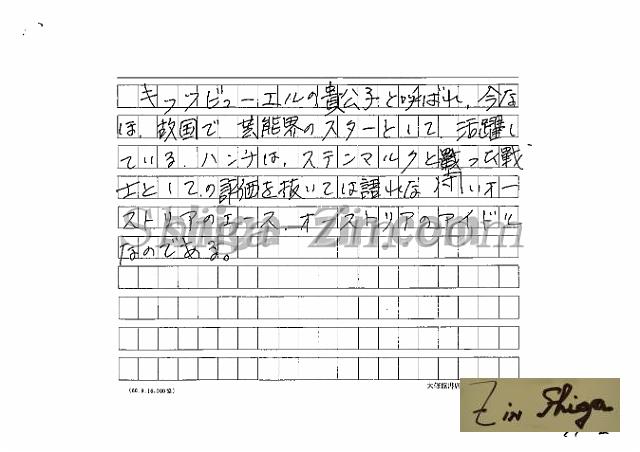 キッツビューエルの貴公子と呼ばれ、今な
ほ、故国で、芸能界のスターとして、活躍し
ている。ハンナは、ステンマルクと戦った戦
士としての評価を抜いては語れない、オー
ストリアのエース、オーストリアのアイドル
なのである。
Shiga Zin.com
(60.9.10,000箋)
Zin Shiga